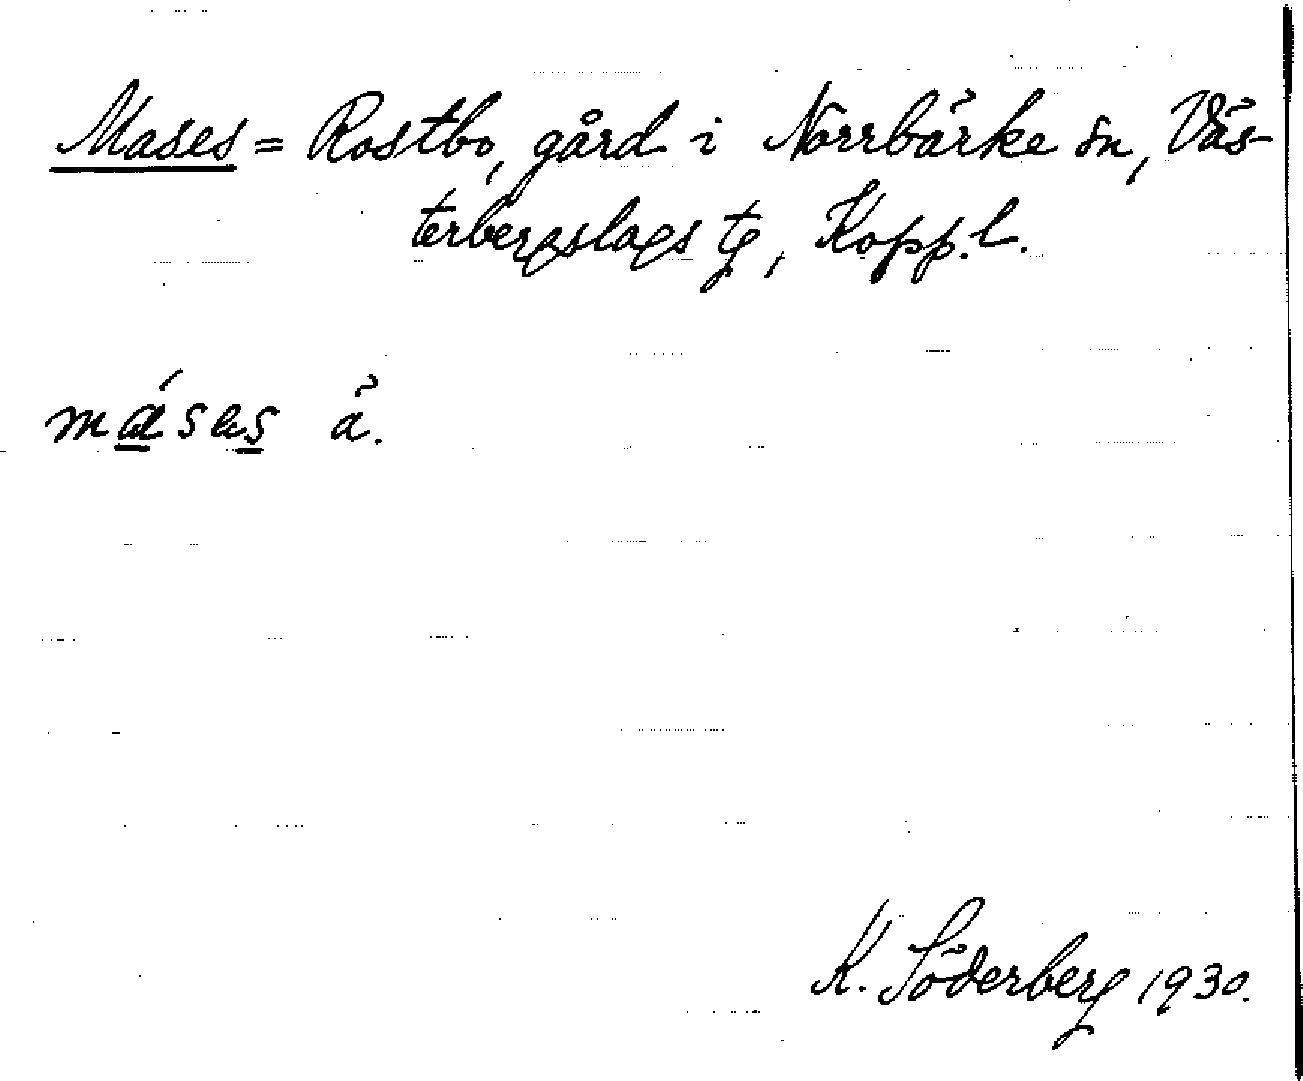 Mases = Rostbo, gård i Norrbärke sn, Väs-
terbergslags tg, Kopp.l.
máses ä.
K. Söderberg 1930.